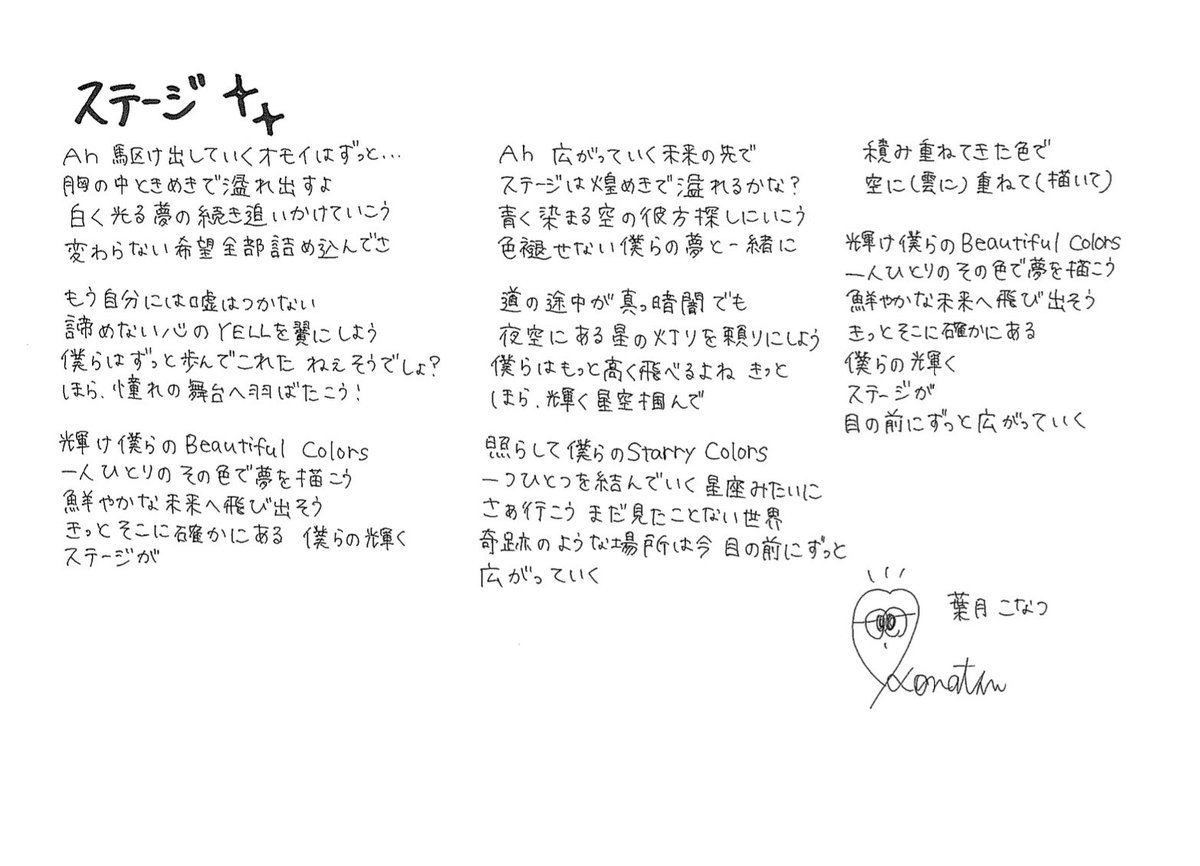 ステージ
Ah 駆け出していくオモイはずっと…
胸の中ときめきで溢れ出すよ
白く光る夢の続き追いかけていこう
変わらない希望全部詰め込んでさ
もう自分には嘘はつかない
諦めない心のYELLを翼にしよう
僕らはずっと歩んでこれた ねぇそうでしょ?
ほら、憧れの舞台へ羽ばたこう!
輝け僕らのBeautiful Colors
一人ひとりの その色で夢を描こう
鮮やかな未来へ飛び出そう
きっとそこに確かにある 僕らの輝く
ステージが
Ah 広がっていく未来の先で
ステージは煌めきで溢れるかな?
青く染まる空の彼方探しにいこう
色褪せない僕らの夢と一緒に
道の途中が真っ暗闇でも
夜空にある星の灯りを頼りにしよう
僕らはもっと高く飛べるよね きっと
ほら、輝く星空掴んで
照らして僕らのStarry Colors
一つひとつを結んでいく星座みたいに
さぁ行こう まだ見たことない世界
奇跡のような場所は今 目の前にずっと
広がっていく
積み重ねてきた色で
空に(雲に)重ねて(描いて)
輝け僕らのBeautiful Colors
一人ひとりのその色で夢を描こう
鮮やかな未来へ飛び出そう
きっとそこに確かにある
僕らの輝く
ステージが
目の前にずっと広がっていく
葉月 こなつ
Konatsu